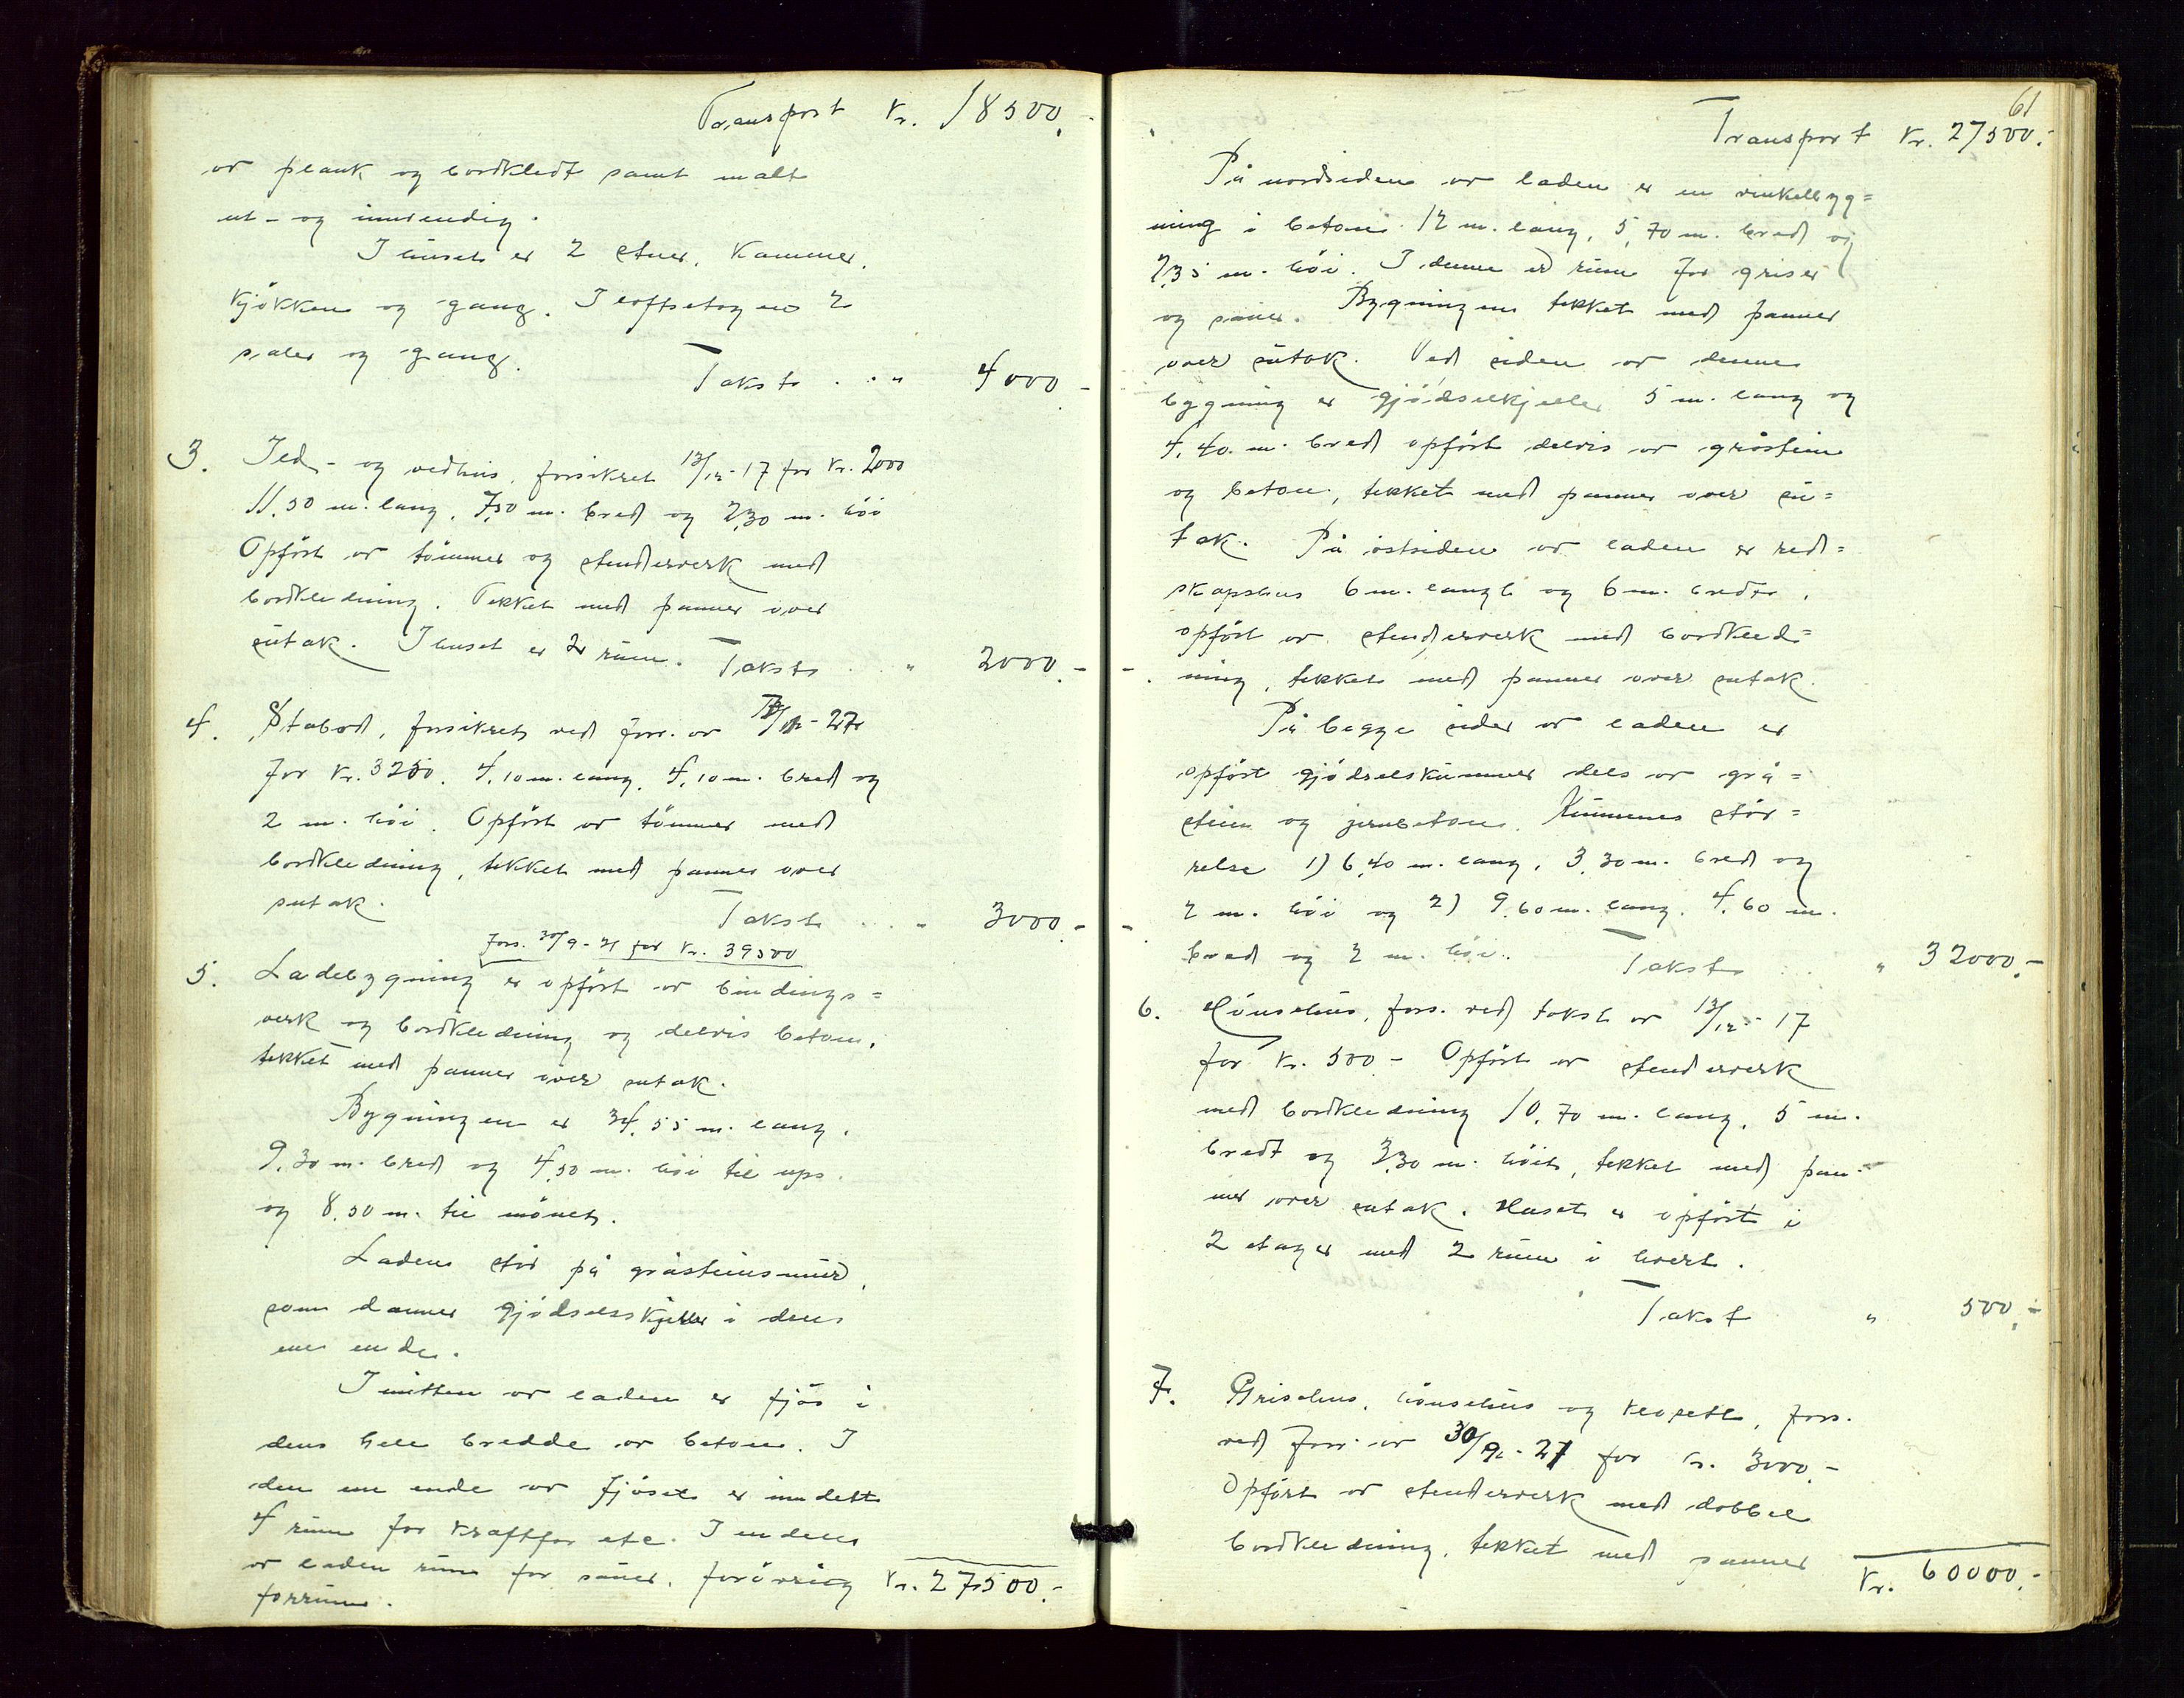 Transport Kr. 18500.-
av plank og bordkledt samt malt
ut- og innvendig.
I huset er 2 stuer, kammer,
kjökken og gang. I loftsetagen 2
saler og gang.
Takst . . " 4000.-
3. Ild- og vedhus, forsikret 13/12-17 for Kr. 2000
11,50 m. lang, 7,50 m. bred og 2,30 m. höi
Opfört av tömmer og stenderverk med
bordkledning. Tekket med panner over
sutak. I huset er 2 rum. Takst . " 2000.-
4. Stabod, forsikret ved forr. av -27
for Kr. 3250. 4,10 m. lang, 4,10 m. bred og
2 m. höi. Opfört av tömmer med
bordkledning, tekket med panner over
sutak.
Takst . . . " 3000.-
fors. 30/9-21 for Kr. 39500
5. Ladebygning er opfört av bindings=
verk og bordkledning og delvis beton,
tekket med panner over sutak.
Bygningen er 34,55 m. lang,
9,30 m. bred og 4,50 m. höi til ups.
og 8,50 m. til mönet.
Laden står på gråsteinsmur,
som danner gjödselskjeller i dens
ene ende.
I midten av laden er fjös i
dens hele bredde av beton. I
den ene ende av fjöset er inndelt
4 rum for kraftfor etc. I en del
av laden rum for sauer, forövrig Kr. 27500.-
forrum.
61
Transport Kr. 27500.-
På nordsiden av laden er en vinkelbyg=
ning i beton 12 m. lang, 5,70 m. bred og
2,35 m. höi. I denne er rum for griser
og sauer. Bygningen tekket med panner
over sutak. Ved siden av denne
bygning er gjödselkjeller 5 m. lang og
4,40 m. bred opfört delvis av gråstein
og beton, tekket med panner over su=
tak. På östsiden av laden er red=
skapshus 6 m. langt og 6 m. bredt,
opfört av stenderverk med bordkled=
ning, tekket med panner over sutak.
På begge sider av laden er
opfört gjödselskummer dels av grå=
stein og jernbeton. Kummenes stör=
relse 1) 6,40 m. lang, 3,30 m. bred og
2 m. höi og 2) 9,60 m. lang, 4,60 m.
bred og 2 m. höi.
Takst . . " 32000.-
6. Hönsehus, fors. ved takst av 13/12-17
for Kr. 500.- Opfört av stenderverk
med bordkledning 10,70 m. lang, 5 m.
bredt og 3,30 m. höit, tekket med pan-
ner over sutak. Huset er opfört i
2 etager med 2 rum i hvert.
Takst " 500.-
7. Grisehus, hönsehus og klosett, fors.
ved forr. av 30/9-21 for Kr. 3000.-
Opfört av stenderverk med dobbel
bordkledning, tekket med panner
Kr. 60000.-